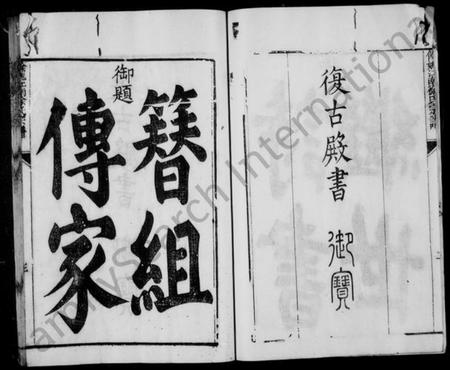 復古殿書 御寶
御題
簪組
傳家
FamilySearch International